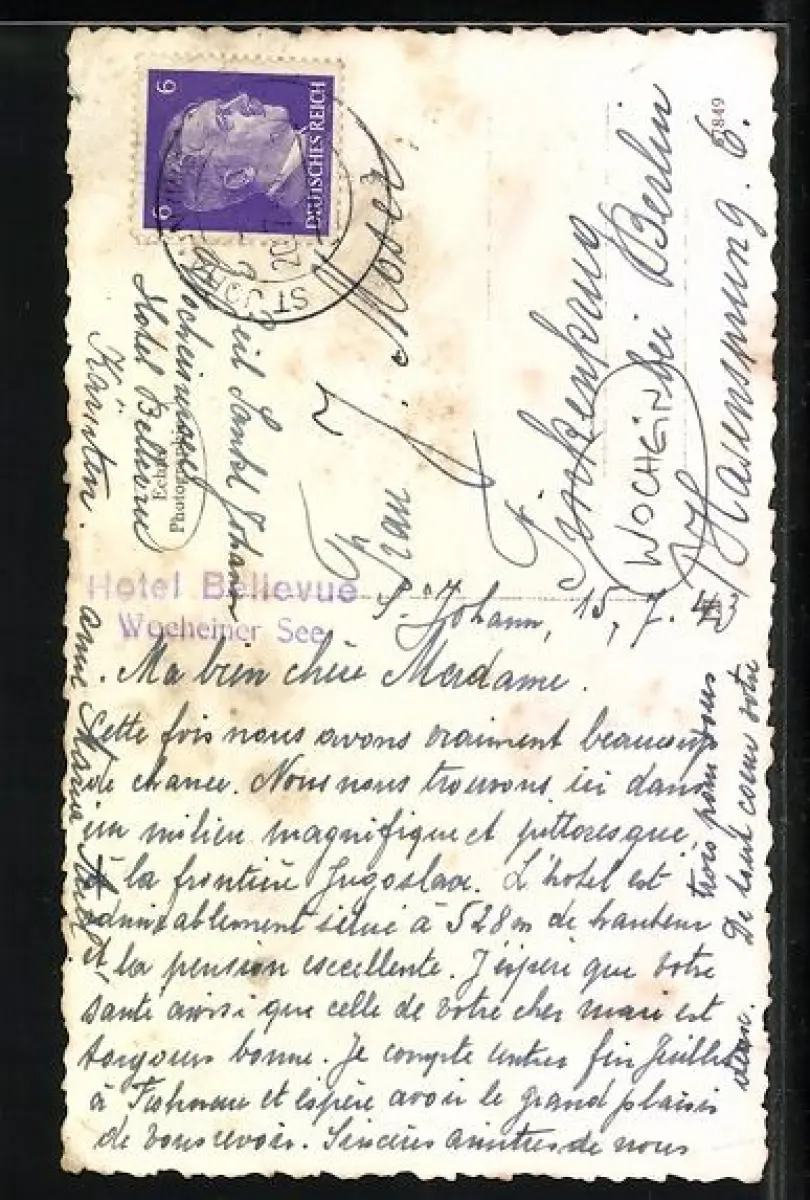 6
6
DEUTSCHES REICH
ST. JOHA
849
Frau
J. Moser
Finkenkrug
bei Berlin
Hasensprung 6.
WOCHEIN
Post Sankt Johann
Wocheinersee
Hotel Bellevue
Kärnten.
Echte
Photographie
Hotel Bellevue
Wocheiner See
St. Johann, 15, 7. 43
Ma bien chère Madame.
Cette fois nous avons vraiment beaucoup
de chance. Nous nous trouvons ici dans
un milieu magnifique et pittoresque,
à la frontière Jugoslave. L'hotel est
admirablement situé à 528 m de hauteur
et la pension excellente. J'éspère que votre
santé ainsi que celle de votre cher mari est
toujours bonne. Je compte rentrer fin Juillet
à et éspère avoir le grand plaisir
de vous revoir. Sincères amitiés de nous
trois pour vous
De tout coeur votre
anne Maria